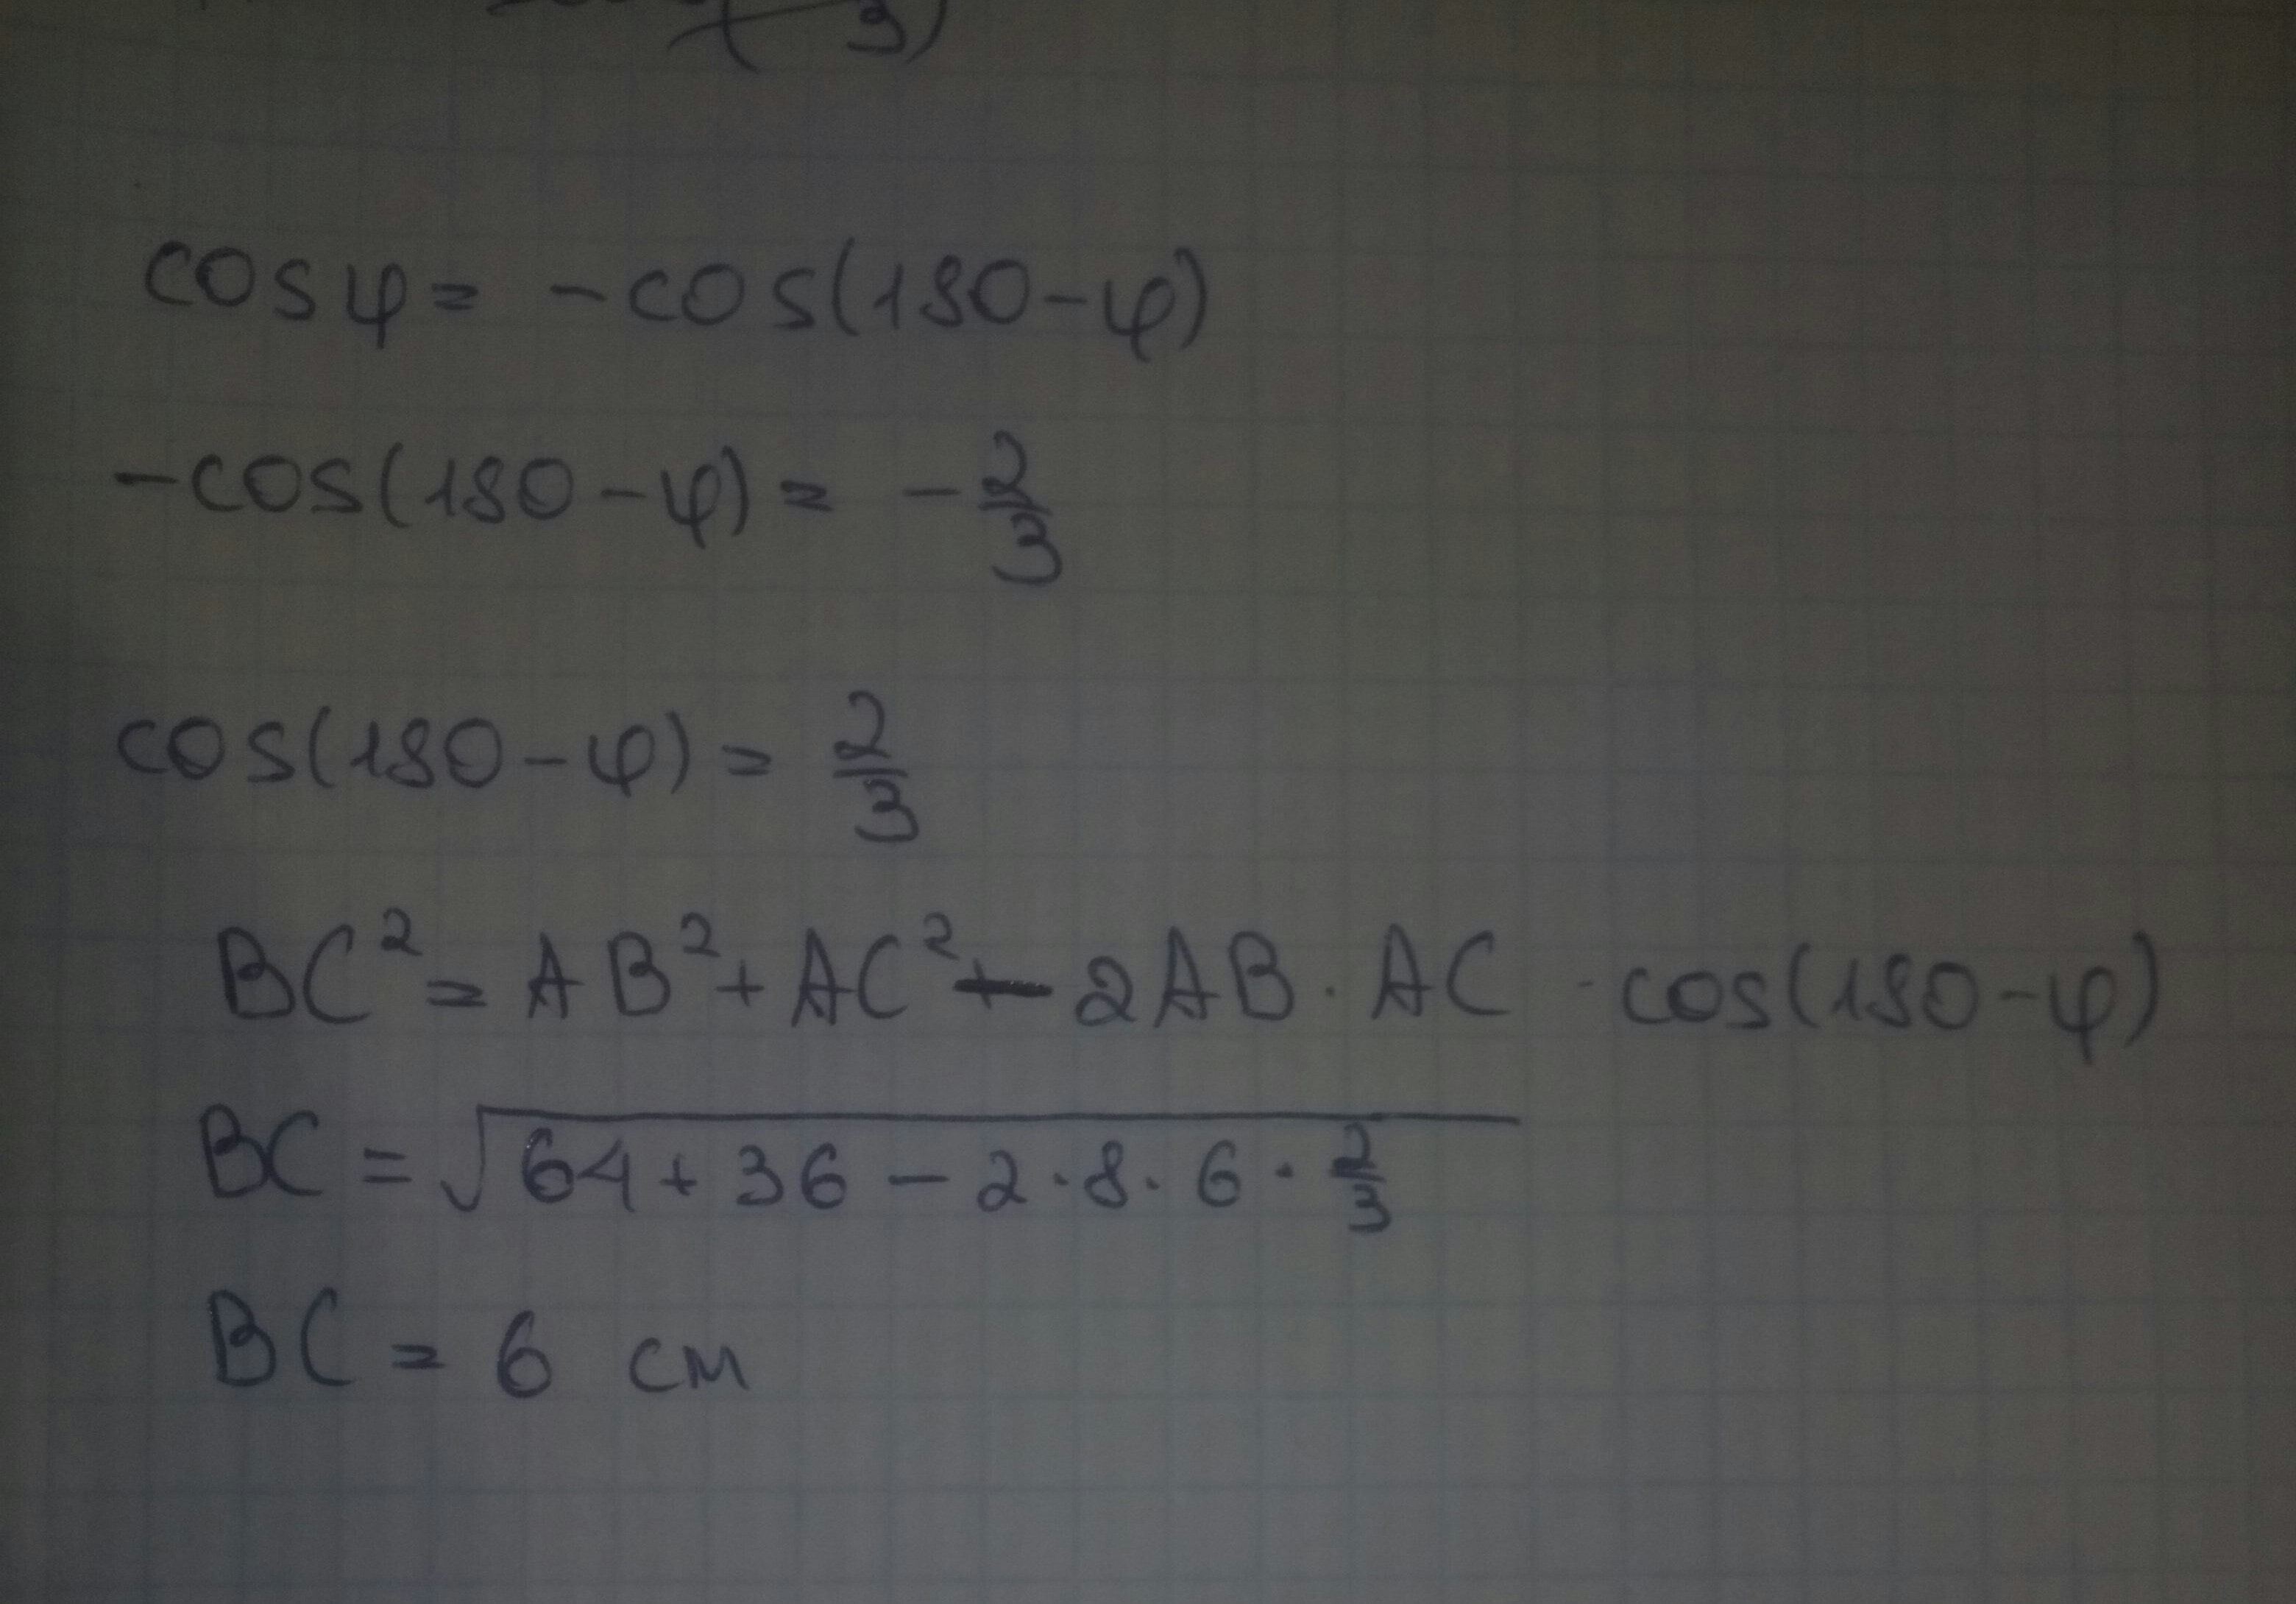 3)
cos φ = -cos(180-φ)
-cos(180-φ) = -2/3
cos(180-φ) = 2/3
BC² = AB² + AC² - 2AB · AC · cos(180-φ)
BC = √(64 + 36 - 2 · 8 · 6 · 2/3)
BC = 6 см